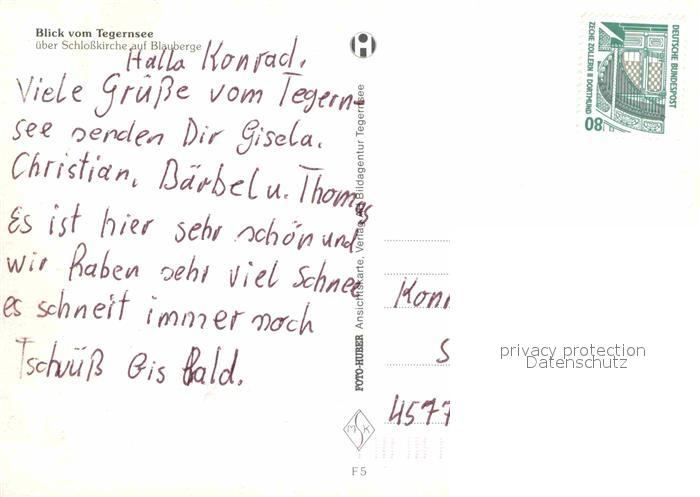 Blick vom Tegernsee
über Schloßkirche auf Blauberge
Hallo Konrad.
Viele Grüße vom Tegern-
see senden Dir Gisela.
Christian, Bärbel u. Thomas
Es ist hier sehr schön und
wir haben sehr viel Schnee
es schneit immer noch
Tschüß Bis Bald.
FOTO-HUBER Ansichtskarte, Verlag Bildagentur Tegernsee
MSK
F 5
DEUTSCHE BUNDESPOST
ZECHE ZOLLERN II DORTMUND
80
Konr
S
4577
privacy protection
Datenschutz